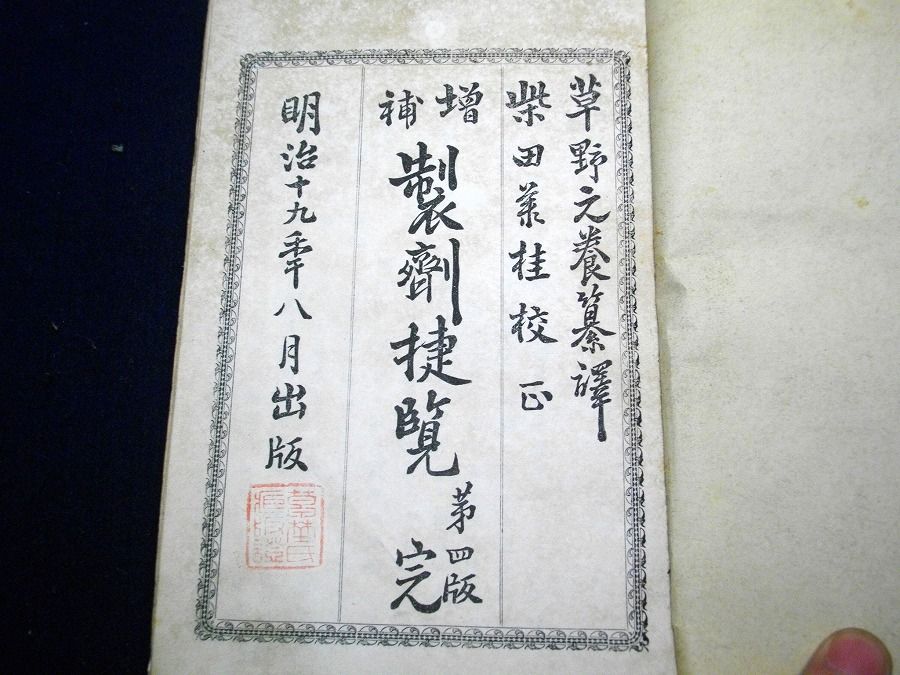 草野元養纂譯
柴田承桂校正
增補
製劑捷覽
第四版
完
明治十九年八月出版